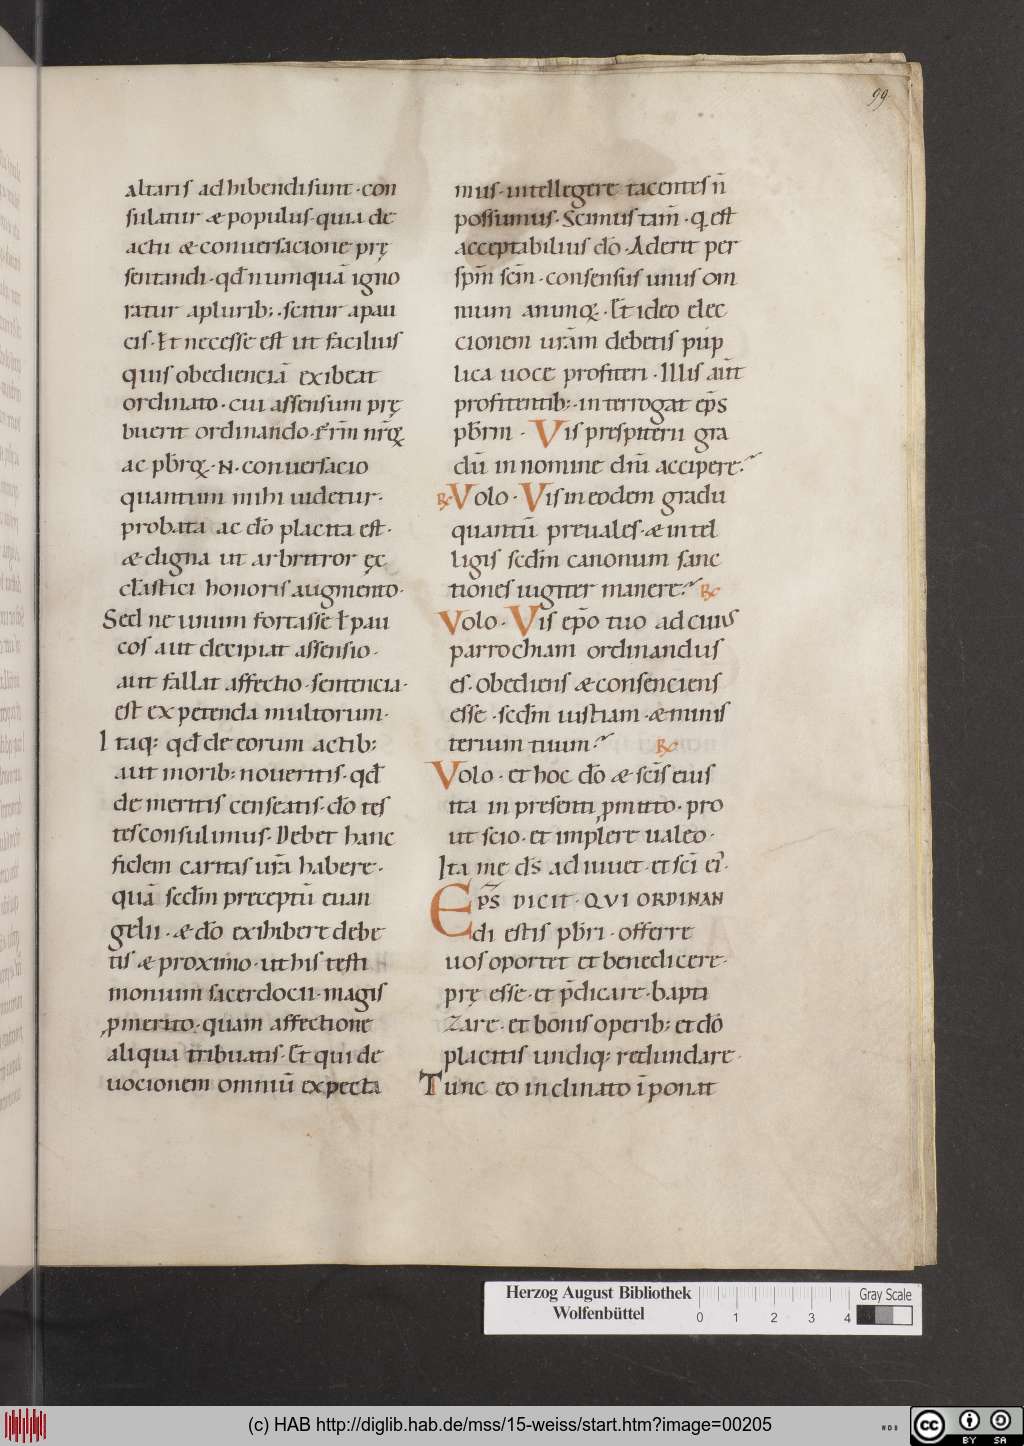 99
altaris adhibendi sunt · con
sulatur & populus · quia de
actu & conuersacione prę
sentandi · qđ numquā igno
ratur a plurib; · scitur a pau
cis · Et necesse est ut facilius
quis obediencia̅ exibeat
ordinato · cui assensum prę
buerit ordinando ·
ac · N · conuersacio
quantum mihi uidetur ·
probata ac dō placita est ·
& digna ut arbitror ęc
cłastici honoris augmento ·
Sed ne unum fortasse ł pau
cos aut decipiat assensio ·
aut fallat affectio · sentencia ·
est expetenda multorum ·
Itaq; qđ de eorum actib;
aut morib; noueritis · qđ
de meritis censeatis · dō tes
tes consulimus · Debet hanc
fidem caritas ur̄a habere ·
quā scđm preceptū euan
gelii · & dō exihibere debe
tis & proximo · ut his testi
monium sacerdocii · magis
ꝓmerito · quam affectione
aliqua tribuatis · Et qui de
uocionem omniū expecta
mus · intellegere tacentes n̄
possumus · Scimus tam̄ · q̨ est
acceptabilius dō · Aderit per
sp̄m sc̄m · consensus unus om
nium animoꝝ · Et ideo elec
cionem ur̄am debetis pup
lica uoce profiteri · Illis aut̄
profitentib; · interrogat ep̄s
pb̄rm · Vis prespiterii gra
dū in nomine dn̄i accipere ?
℟ Volo · Vis in eodem gradu
quantū preuales · & intel
ligis scđm canonum sanc
tiones iugiter manere ? ℟
Volo · Vis ep̄o tuo ad cuius
parrochiam ordinandus
es · obediens & consenciens
esse · scđm iustiam · & minis
terium tuum ? ℟
Volo · et hoc dō & sc̄is eius
ita in presenti ꝓmitto · pro
ut scio · et implere ualeo ·
Ita me ds̄ adiuuet · et sc̄i ei' ·
Ep̄s DICIT · QVI ORDINAN
di estis pb̄ri · offerre
uos oportet et benedicere ·
prę esse · et p̄dicare · bapti
zare · et bonis operib; et dō
placitis undiq; redundare ·
Tunc eo inclinato īponat
Herzog August Bibliothek
Wolfenbüttel
0 1 2 3 4
Gray Scale
(c) HAB http://diglib.hab.de/mss/15-weiss/start.htm?image=00205
WDB
cc BY SA